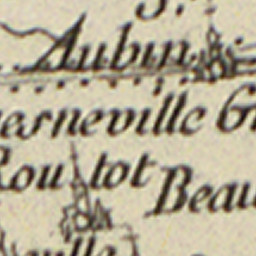 S.t
Aubin
esneville G
Routot
Beau
ville